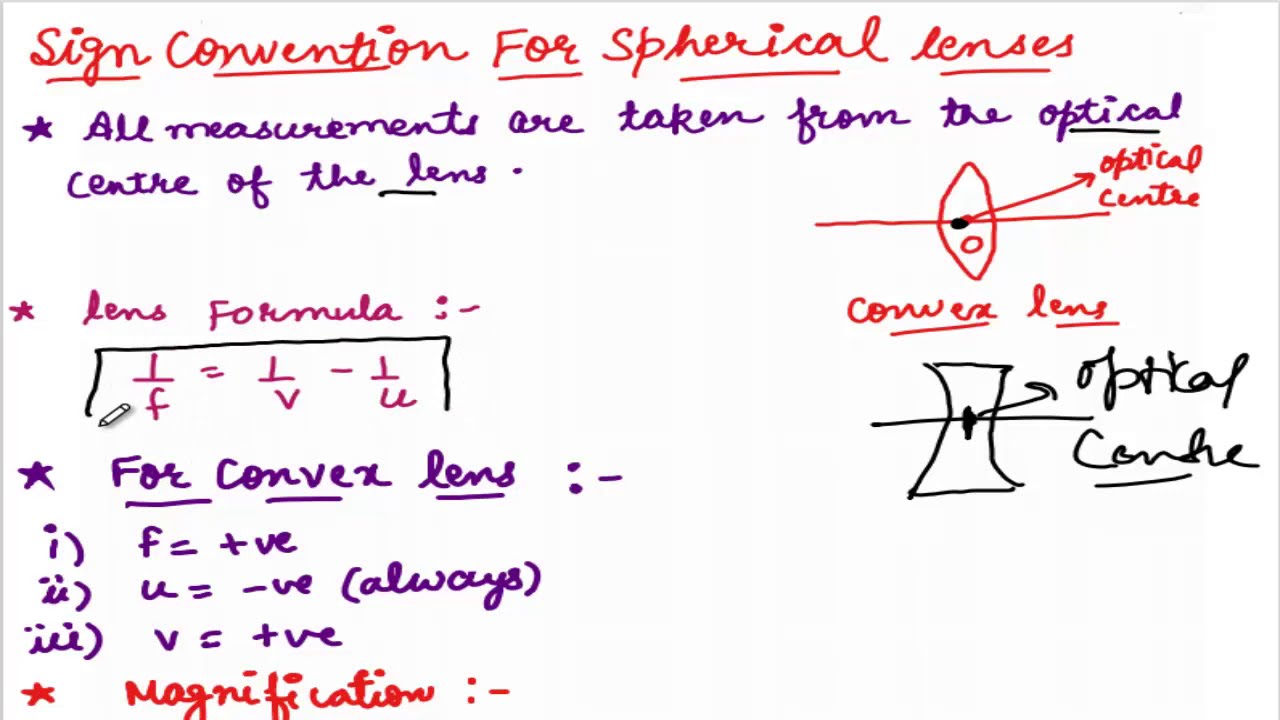 Sign Convention For Spherical lenses
★ All measurements are taken from the optical
centre of the lens.
optical
centre
O
convex lens
★ lens Formula :-
1/f = 1/v - 1/u
optical
Centre
★ For Convex lens :-
i) f = +ve
ii) u = -ve (always)
iii) v = +ve
★ Magnification :-